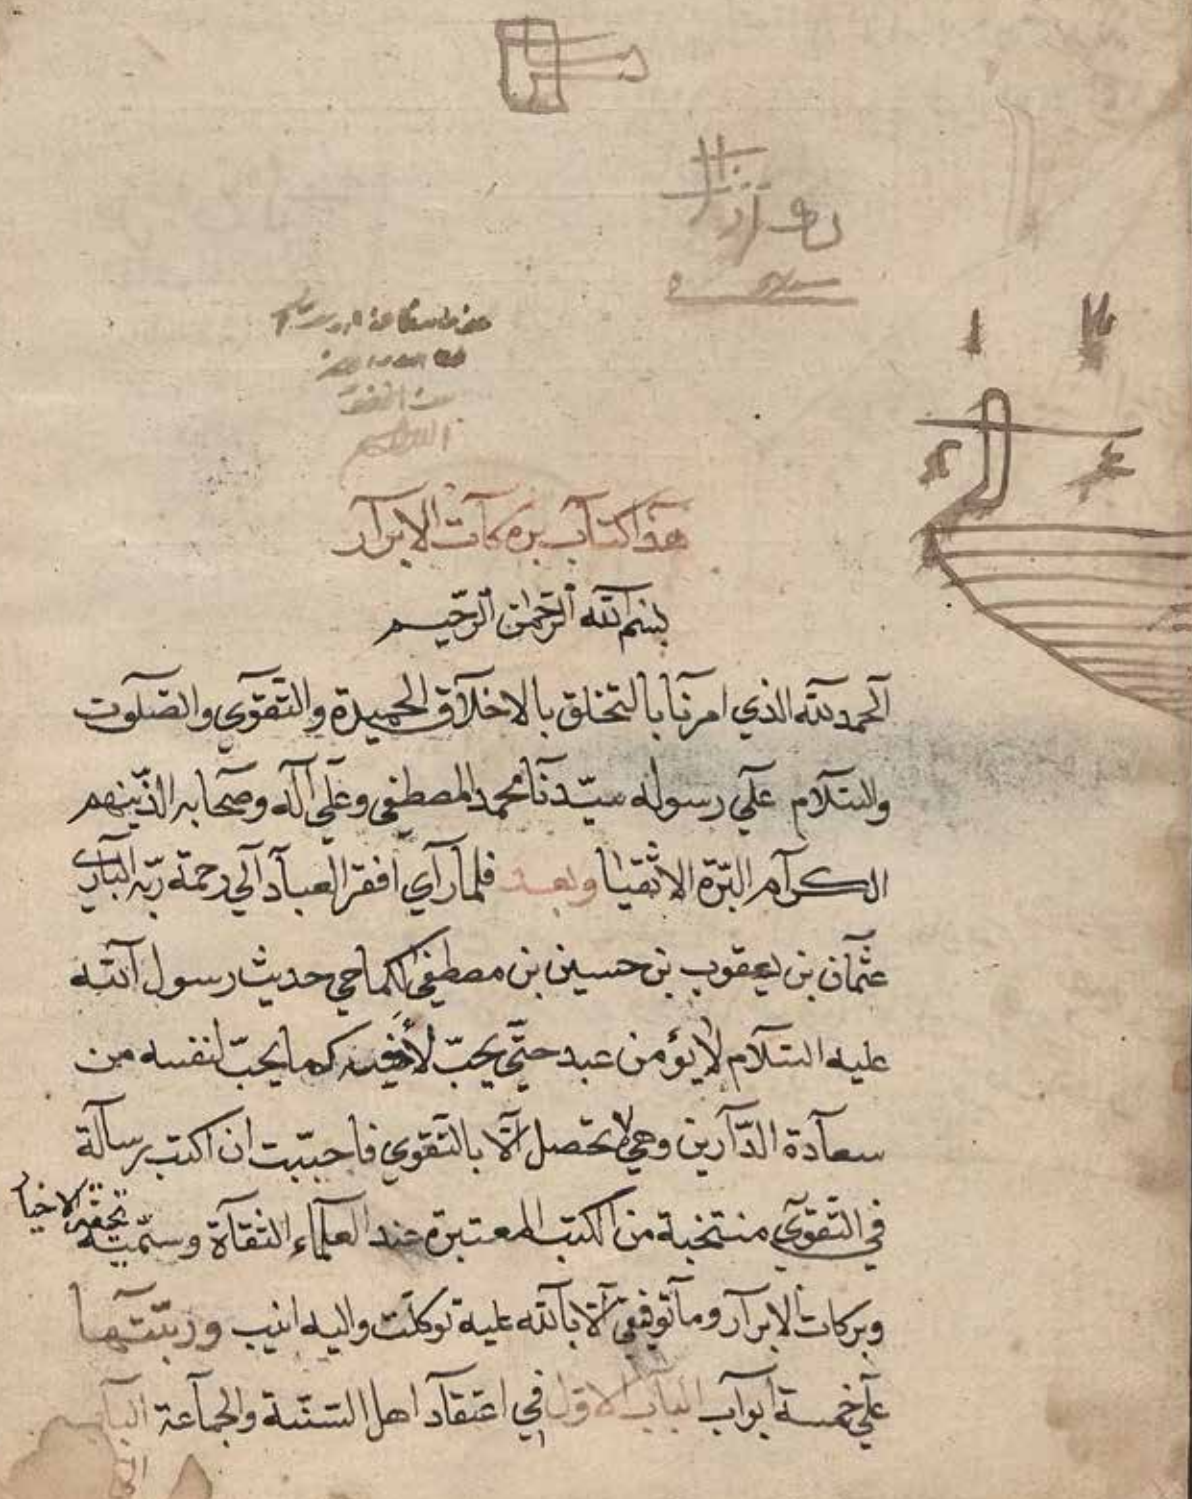 هذا كتاب بركات الابرار
بسم الله الرحمن الرحيم
الحمد لله الذي امرنا بالتخلق بالاخلاق الحميدة والتقوي والصلوت
والسلام علي رسوله سيدنا محمد المصطفي وعلي آله وصحابه الذينهم
الكرام البررة الاتقيا وبعد فلما رآي افقر العباد الي رحمة ربه الباري
عثمان بن يعقوب بن حسين بن مصطفي الكماحي حديث رسول الله
عليه السلام لا يؤمن عبد حتي يحب لأخيه كما يحب لنفسه من
سعادة الدارين وهي لا تحصل الا بالتقوي فاحببت ان اكتب رسالة
في التقوي منتخبة من الكتب المعتبرة عند العلماء الثقاة وسميته تحفة الاخيار
وبركات الابرار وما توفيقي الا بالله عليه توكلت واليه انيب ورتبتها
علي خمسة ابواب الباب الاول في اعتقاد اهل السنة والجماعة الباب